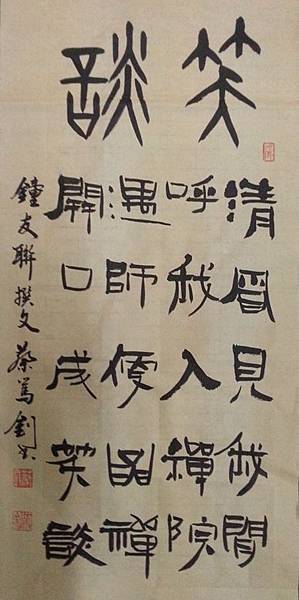 笑談
清眉見我閒
呼我入禪院
遇師便品禪
開口成笑談
鐘友聯撰文 蔡篤釗書